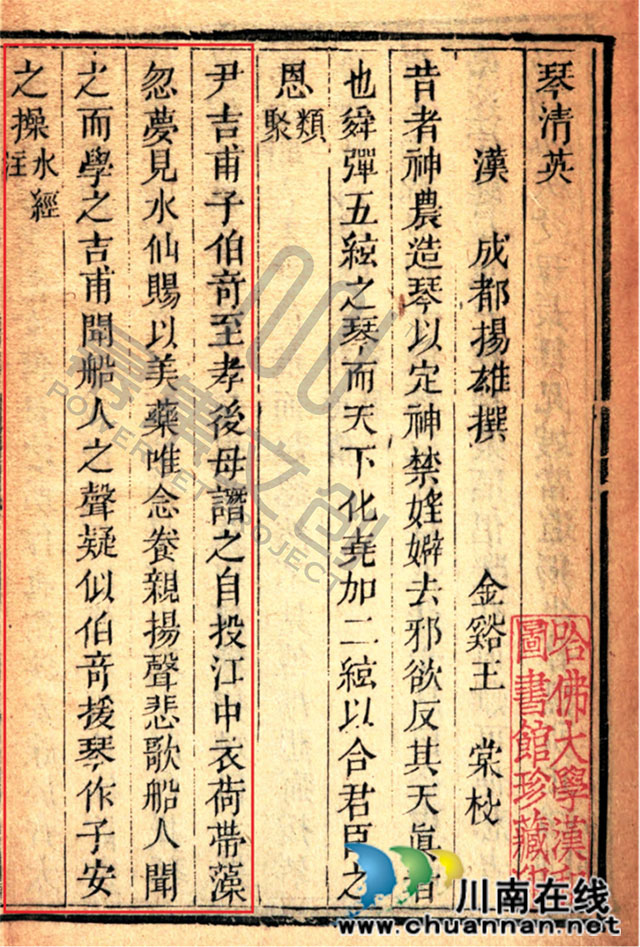 琴清英
漢 成都揚雄撰 金谿王 棠校
昔者神農造琴以定神禁婬嬖去邪欲反其天眞者
也舜彈五絃之琴而天下化堯加二絃以合君臣之
恩 類聚
尹吉甫子伯奇至孝後母譖之自投江中衣荷帶藻
忽夢見水仙賜以美藥唯念養親揚聲悲歌船人聞
之而學之吉甫聞船人之聲疑似伯奇援琴作子安
之操 水經注
哈佛大學漢和
圖書館珍藏
POWERNET PROJECT
川南在线
www.chuannan.net